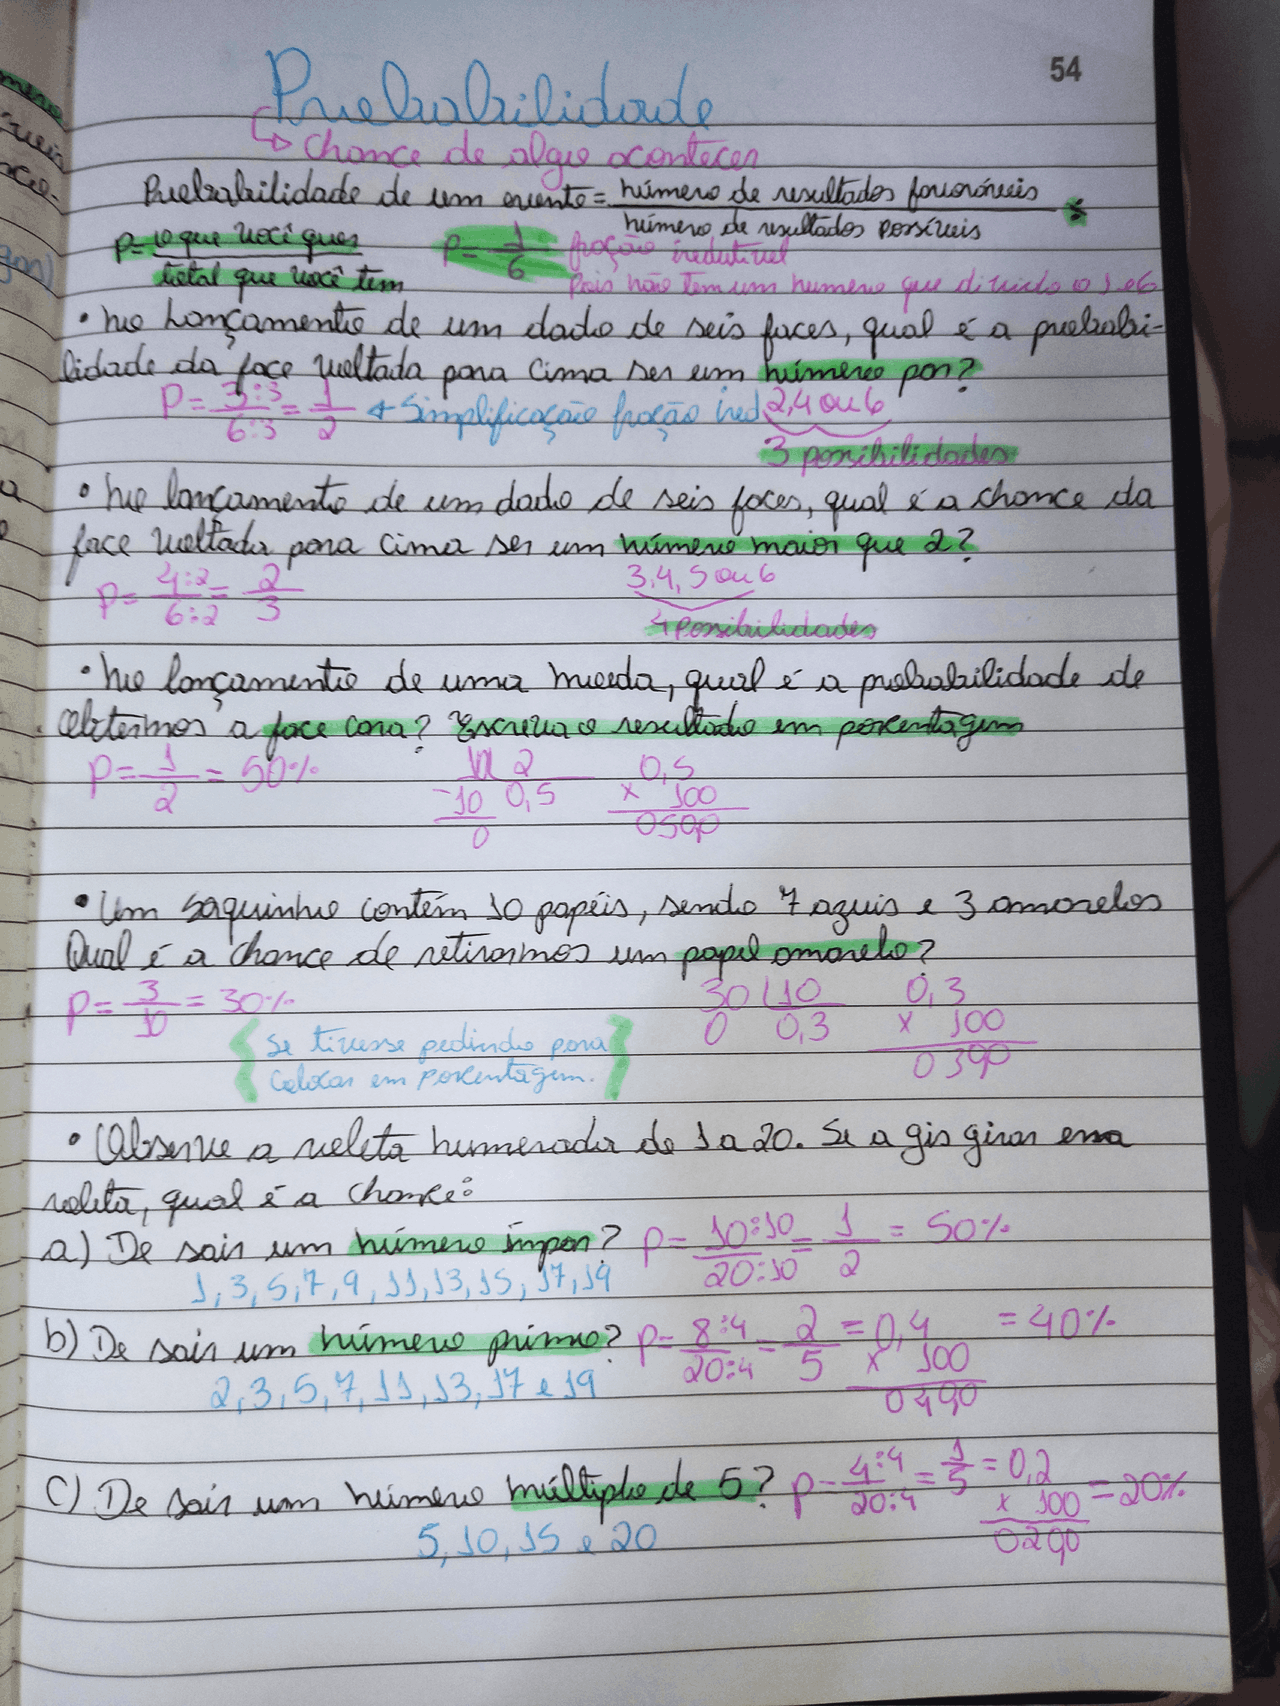 54
Probabilidade
↳ Chance de algo acontecer
Probabilidade de um evento = número de resultados favoráveis
número de resultados possíveis
P = o que você quer
total que você tem
P = 1/6 = fração irredutível
Pois não tem um numero que divida o 1 e 6
• No lançamento de um dado de seis faces, qual é a probabi-
lidade da face voltada para cima ser um número par?
P = 3:3/6:3 = 1/2 → Simplificação fração irred 2,4 ou 6
3 possibilidades
• No lançamento de um dado de seis faces, qual é a chance da
face voltada para cima ser um número maior que 2?
P = 4:2/6:2 = 2/3 3,4,5 ou 6
4 possibilidades
• No lançamento de uma moeda, qual é a probabilidade de
obtermos a face cara? Escreva o resultado em porcentagem
P = 1/2 = 50% 2 0,5
-10 0,5 x 100
0 0500
• Um saquinho contém 10 papéis, sendo 7 azuis e 3 amarelos
Qual é a chance de retirarmos um papel amarelo?
P = 3/10 = 30% 30 10 0,3
0 0,3 x 100
0300
{ Se tivesse pedindo para
colocar em porcentagem. }
• Observe a roleta numerada de 1 a 20. Se a gis girar essa
roleta, qual é a chance:
a) De sair um número ímpar? P = 10:10/20:10 = 1/2 = 50%
1, 3, 5, 7, 9, 11, 13, 15, 17, 19
b) De sair um número primo? P = 8:4/20:4 = 2/5 = 0,4 = 40%
x 100
2, 3, 5, 7, 11, 13, 17 e 19 0400
c) De sair um número múltiplo de 5? P = 4:4/20:4 = 1/5 = 0,2 = 20%
x 100
5, 10, 15 e 20 0200